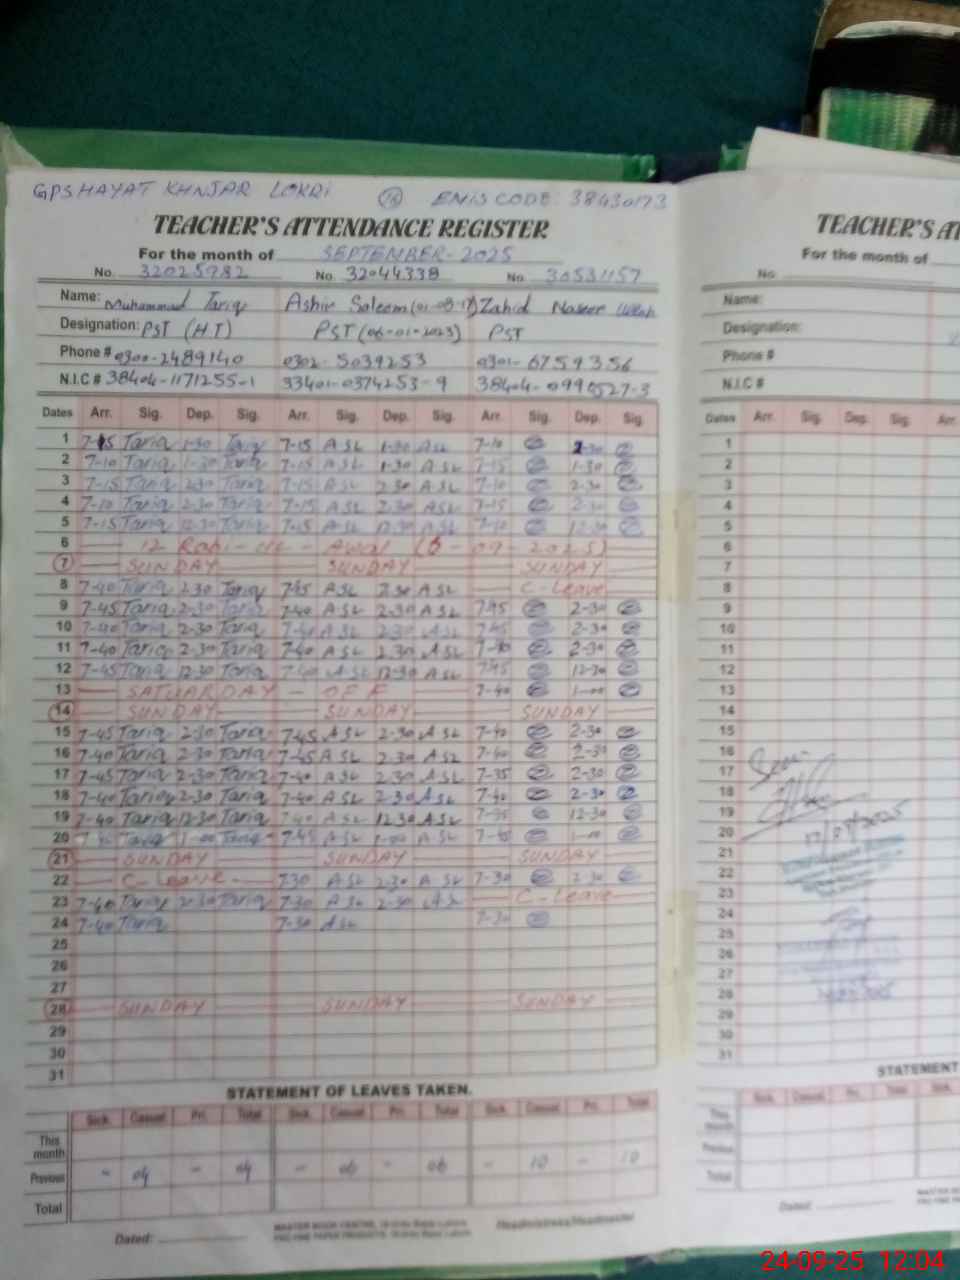 GPS HAYAT KHNJAR LOKRI EMIS CODE: 38430173
TEACHER'S ATTENDANCE REGISTER
For the month of SEPTEMBER-2025
No. 32025982 No. 32044338 No. 30531157
Name: Muhammad Tariq Ashir Saleem Zahid Naseer Ullah
Designation: PST (H.T) PST (06-01-2023) PST
Phone # 0300-2489140 0302-5039253 0301-6759356
N.I.C # 38404-1171255-1 33401-0374253-9 38404-
Dates Arr. Sig. Dep. Sig. Arr. Sig. Dep. Sig. Arr. Sig. Dep. Sig.
1 7-15 Tariq 1-30 Tariq 7-15 ASL 1-30 ASL 7-10
2 7-10 Tariq 1-30 Tariq 7-15 ASL 1-30 ASL 7-15 1-30
3 7-15 Tariq 2-30 Tariq 7-15 ASL 2-30 ASL 7-10 2-30
4 7-10 Tariq 2-30 Tariq 7-15 ASL 2-30 ASL 7-15 2-30
5 7-15 Tariq 12-30 Tariq 7-15 ASL 12-30 ASL 7-10 12-30
6 12 Rabi-ul-Awal (6-09 2025)
7 SUNDAY SUNDAY SUNDAY
8 7-40 Tariq 2-30 Tariq 7-45 ASL 2-30 ASL C-Leave
9 7-45 Tariq 2-30 Tariq 7-40 ASL 2-30 ASL 7-45 2-30
10 7-40 Tariq 2-30 Tariq 7-40 ASL 2-30 ASL 7-45 2-30
11 7-40 Tariq 2-30 Tariq 7-40 ASL 2-30 ASL 7-40 2-30
12 7-45 Tariq 12-30 Tariq 7-40 ASL 12-30 ASL 7-45 12-30
13 SATUARDAY - OFF 7-40 1-00
14 SUNDAY SUNDAY SUNDAY
15 7-45 Tariq 2-30 Tariq 7-45 ASL 2-30 ASL 7-40 2-30
16 7-40 Tariq 2-30 Tariq 7-45 ASL 2-30 ASL 7-40 2-30
17 7-45 Tariq 2-30 Tariq 7-40 ASL 2-30 ASL 7-35 2-30
18 7-40 Tariq 2-30 Tariq 7-40 ASL 2-30 ASL 7-40 2-30
19 7-40 Tariq 12-30 Tariq 7-40 ASL 12-30 ASL 7-35 12-30
20 Tariq 1-00 Tariq 7-45 ASL 1-00 ASL 7-40 1-00
21 SUNDAY SUNDAY SUNDAY
22 C-Leave 7-30 ASL 2-30 ASL 7-30 2-30
23 7-40 Tariq 2-30 Tariq 7-30 ASL 2-30 ASL C-Leave
24 7-40 Tariq 7-30 ASL 7-30
25
26
27
28 SUNDAY SUNDAY SUNDAY
29
30
31
STATEMENT OF LEAVES TAKEN.
Sick Casual Pri. Total Sick. Casual Pri. Total Sick. Casual Pri. Total
This month
Previous - 04 - 04 - 06 - 06 - 10 - 10
Total
Dated:
Headmistress/Headmaster
TEACHER'S AT
For the month of
No
Name:
Designation:
Phone #
N.I.C #
Dates Arr. Sig. Dep. Sig. Arr.
1
2
3
4
5
6
7
8
9
10
11
12
13
14
15
16
17
18
19
20
21
22
23
24
25
26
27
28
29
30
31
Seen
STATEMENT
Sick. Casual Pri. Total Sick.
This month
Previous
Total
Dated:
24-09-25 12:04